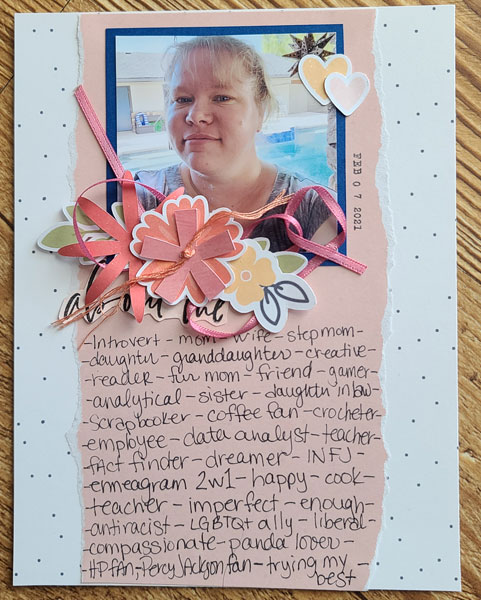 FEB 07 2021
about me
-Introvert - mom - wife - stepmom-
-daughter - granddaughter - creative-
-reader - fur mom - friend - gamer-
-analytical - sister - daughter in law-
-Scrapbooker - coffee fan - crocheter-
employee - data analyst - teacher-
-fact finder - dreamer - INFJ-
-enneagram 2w1 - happy - cook-
-teacher - imperfect - enough-
-antiracist - LGBTQ+ ally - liberal-
-compassionate - panda lover-
-HP fan, Percy Jackson fan - trying my
best